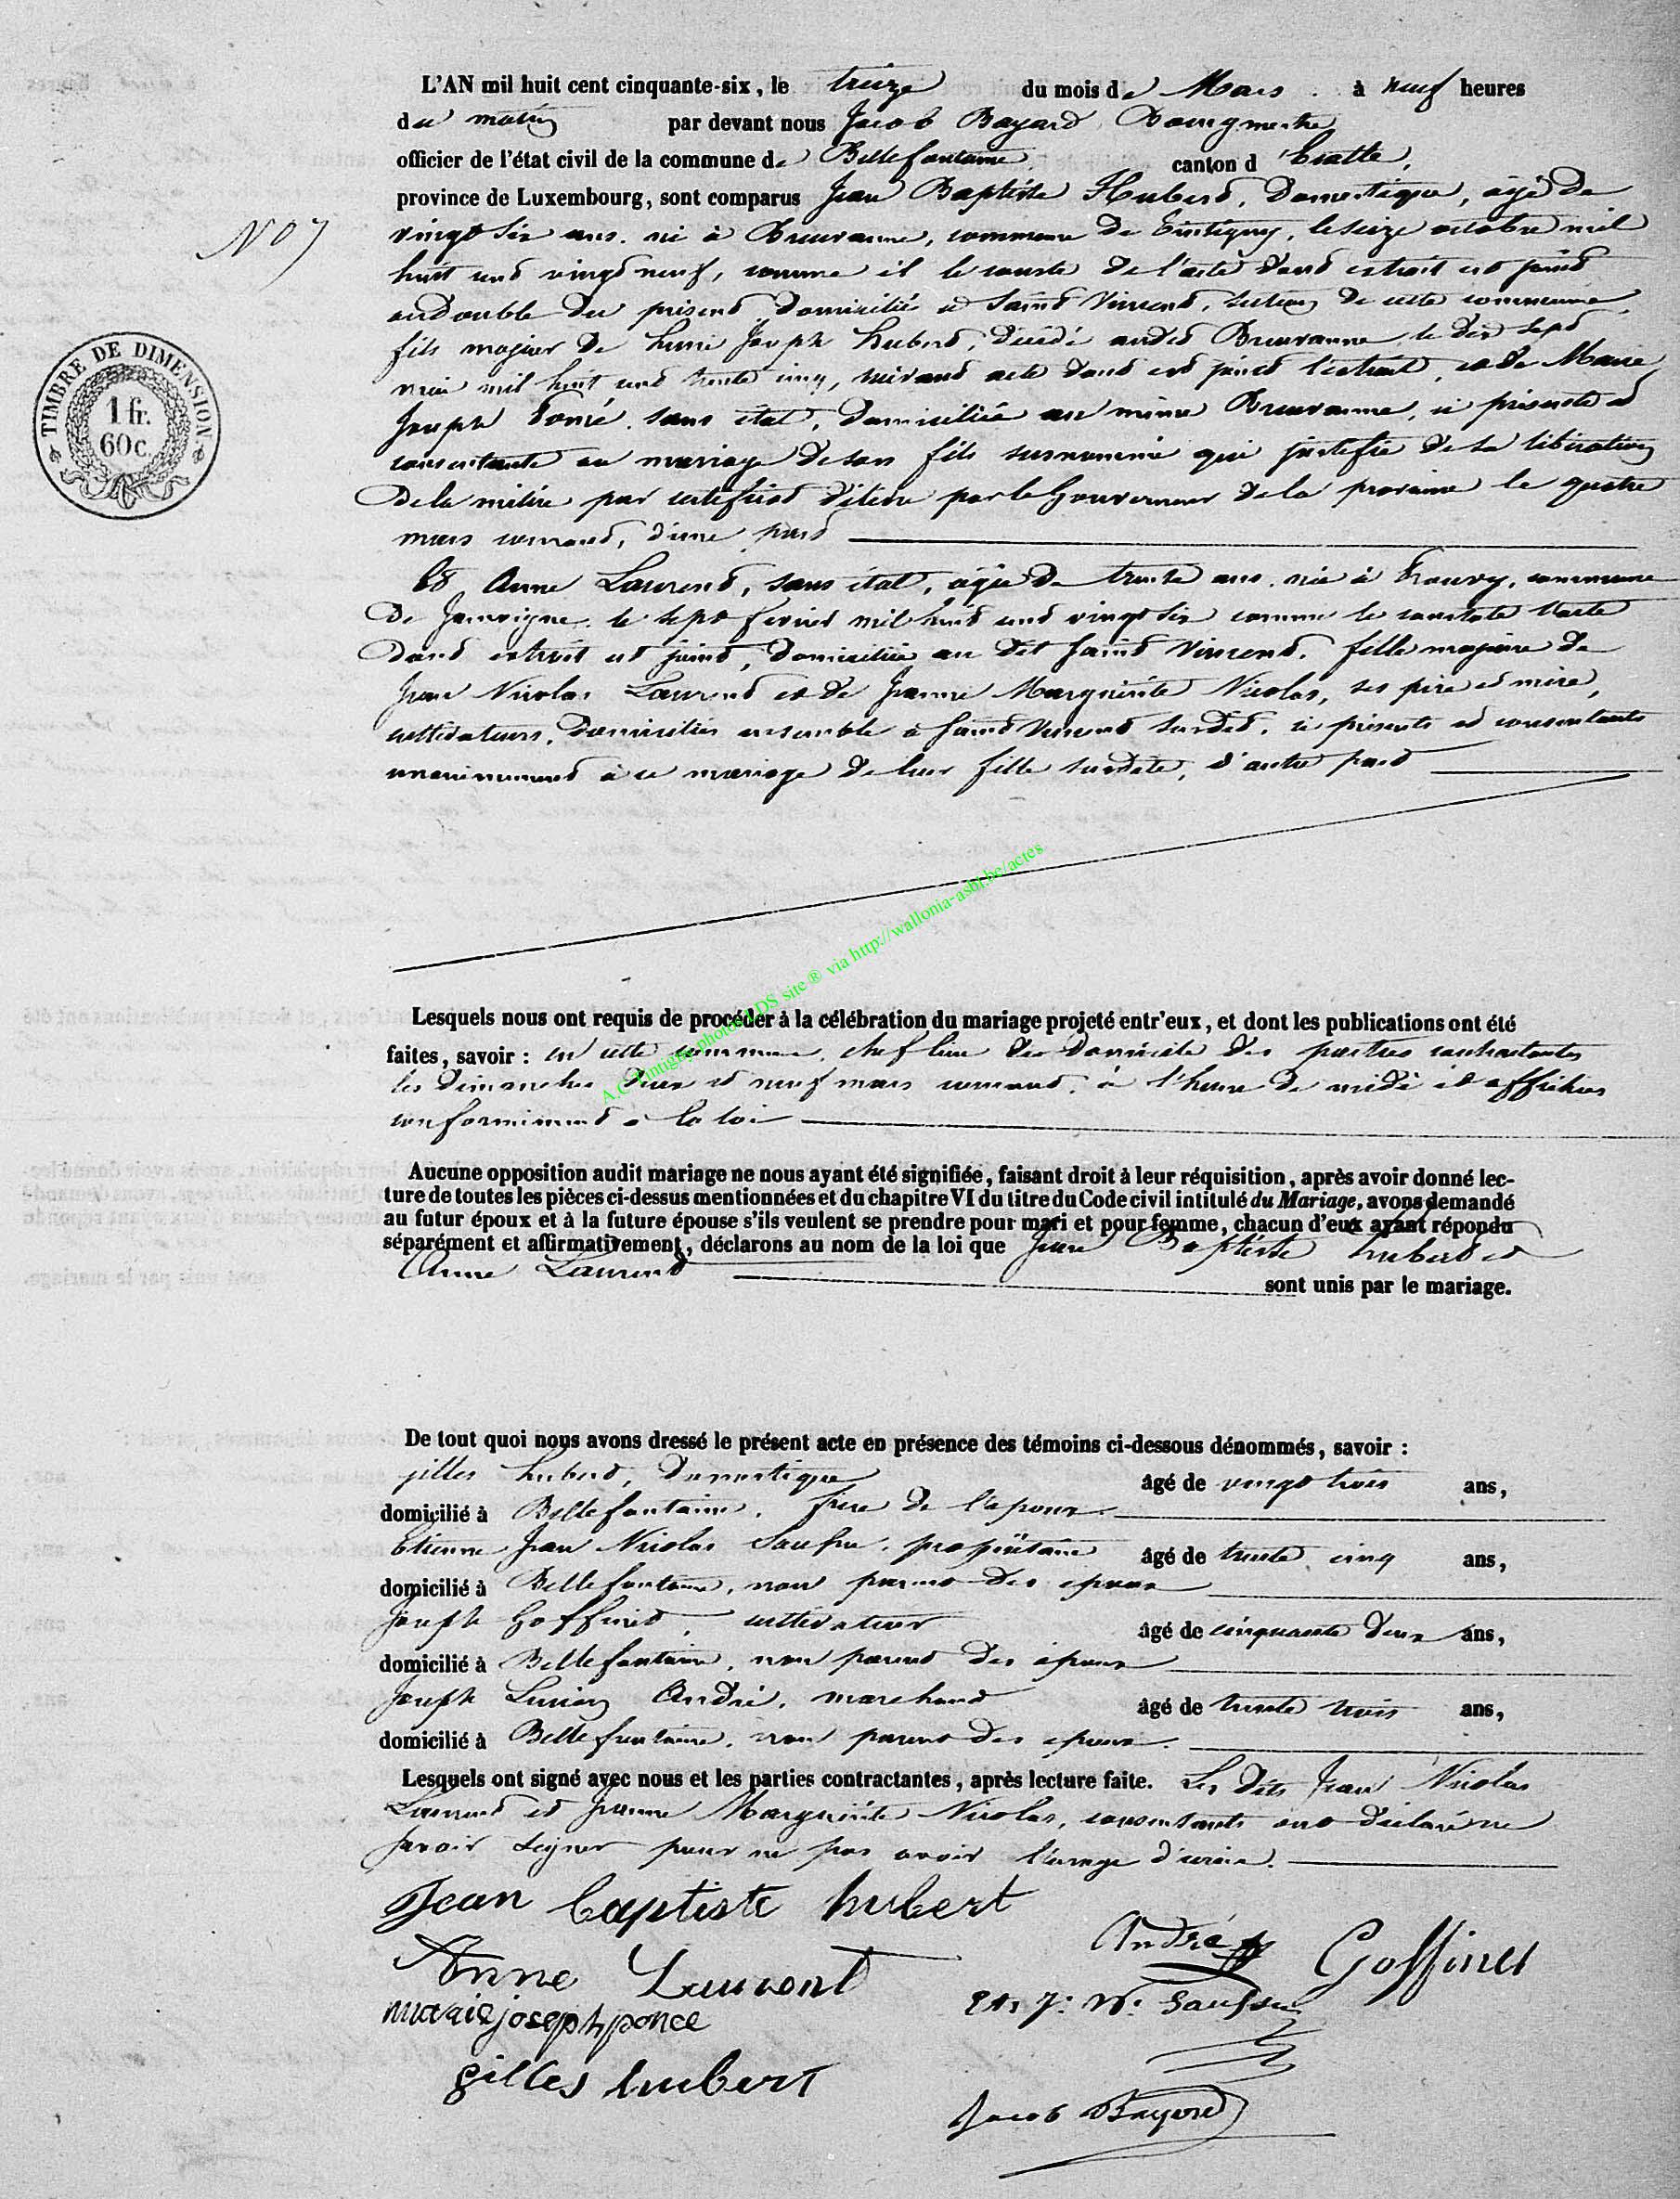 L'AN mil huit cent cinquante-six, le treize du mois de Mars à neuf heures
du matin par devant nous Jacob Bayard Bourgmestre
officier de l'état civil de la commune de Bellefontaine canton d'Etalle,
province de Luxembourg, sont comparus Jean Baptiste Hubert, Domestique, âgé de
N° 7
vingt six ans, né à Breuvanne, commune de Tintigny, le seize octobre mil
huit cent vingt neuf, comme il le conste de l'acte dont extrait est joint
au double du présent, domicilié à Saint Vincent, section de cette commune,
fils majeur de Joseph Hubert, décédé audit Breuvanne le dix sept
mai mil huit cent trente cinq, suivant acte dont est joint l'extrait, et de Marie
Joseph Poncé, sans état, domiciliée au même Breuvanne, ci présente et
consentante au mariage de son fils susnommé qui justifie de sa libération
de la milice par certificat délivré par le Gouverneur de la province le quatre
mars courant, d'une part
Et Anne Laurent, sans état, âgée de trente ans, née à commune
de Jamoigne, le sept février mil huit cent vingt six comme le constate l'acte
dont extrait est joint, domiciliée au dit Saint Vincent, fille majeure de
Jean Nicolas Laurent et de Jeanne Marguerite Nicolas, ses père et mère,
cultivateurs, domiciliés ensemble à Saint Vincent susdit, ci présents et consentants
unanimement à ce mariage de leur fille susdite, d'autre part
TIMBRE DE DIMENSION.
1 fr.
60c.
Lesquels nous ont requis de procéder à la célébration du mariage projeté entr'eux, et dont les publications ont été
faites, savoir : en cette commune, chef lieu du domicile des parties contractantes
les dimanches deux et neuf mars courant, à l'heure de midi et affichées
conformément à la loi
Aucune opposition audit mariage ne nous ayant été signifiée, faisant droit à leur réquisition, après avoir donné lec-
ture de toutes les pièces ci-dessus mentionnées et du chapitre VI du titre du Code civil intitulé du Mariage, avons demandé
au futur époux et à la future épouse s'ils veulent se prendre pour mari et pour femme, chacun d'eux ayant répondu
séparément et affirmativement, déclarons au nom de la loi que Jean Baptiste hubert et
Anne Laurent
sont unis par le mariage.
De tout quoi nous avons dressé le présent acte en présence des témoins ci-dessous dénommés, savoir :
gilles hubert, Domestique âgé de vingt trois ans,
domicilié à Bellefontaine, frère de l'époux
Etienne Jean Nicolas propriétaire âgé de trente cinq ans,
domicilié à Bellefontaine, non parent des époux
Joseph Goffinet, cultivateur âgé de cinquante deux ans,
domicilié à Bellefontaine, non parent des époux
Joseph Lucien André, marchand âgé de trente trois ans,
domicilié à Bellefontaine, non parent des époux
Lesquels ont signé avec nous et les parties contractantes, après lecture faite. Les dits Jean Nicolas
Laurent et Jeanne Marguerite Nicolas, consentants ont déclaré ne
savoir signer pour ne pas avoir l'usage d'écrire.
Jean baptiste hubert
André Goffinet
Anne Laurent
mararie joseph ponce
gilles hubert
Jacob Bayard
A.C. Tintigny photos LDS site ® via http://wallonia-asbl.be/actes